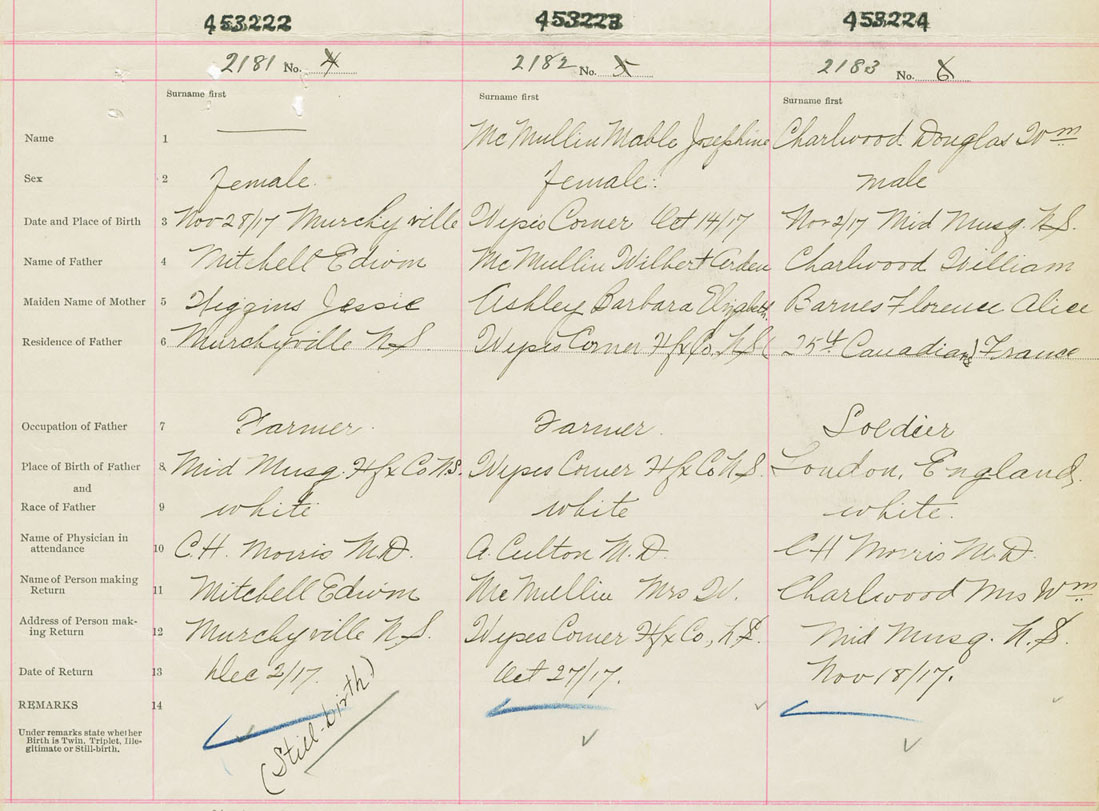 453222 453223 453224
2181 No. 4 2182 No. 5 2183 No. 6
Surname first Surname first Surname first
Name 1 —— McMullin Mable Josephine Charlwood Douglas Wm
Sex 2 female. female. male
Date and Place of Birth 3 Nov 28/17 Murchyville Wyses Corner Oct 14/17 Nov 2/17 Mid Musq. N.S.
Name of Father 4 Mitchell Edwin McMullin Wilbert Arden Charlwood William
Maiden Name of Mother 5 Higgins Jessie Ashley Barbara Elizabeth Barnes Florence Alice
Residence of Father 6 Murchyville N.S. Wyses Corner Hfx Co. N.S. 25th Canadians France
Occupation of Father 7 Farmer. Farmer. Soldier
Place of Birth of Father 8 Mid Musq. Hfx Co N.S. Wyses Corner Hfx Co N.S. London, England.
and
Race of Father 9 white white white.
Name of Physician in
attendance 10 C.H. Morris M.D. A. Culton M.D. C H Morris M.D.
Name of Person making
Return 11 Mitchell Edwin McMullin Mrs W. Charlwood Mrs Wm
Address of Person mak-
ing Return 12 Murchyville N.S. Wyses Corner Hfx Co, N.S. Mid Musq. N.S.
Date of Return 13 Dec 2/17. Oct 27/17. Nov 18/17.
REMARKS 14
(Still-birth)
Under remarks state whether
Birth is Twin, Triplet, Ille-
gitimate or Still-birth.